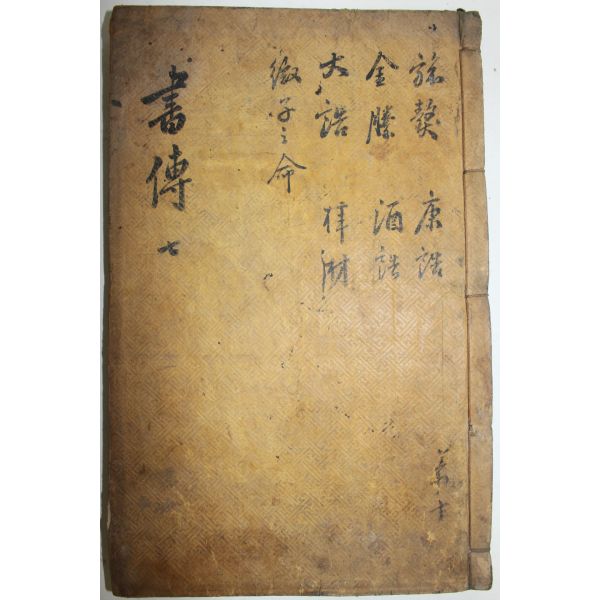 旅獒 康誥
金縢 酒誥
大誥 梓材
微子之命
書傳 七